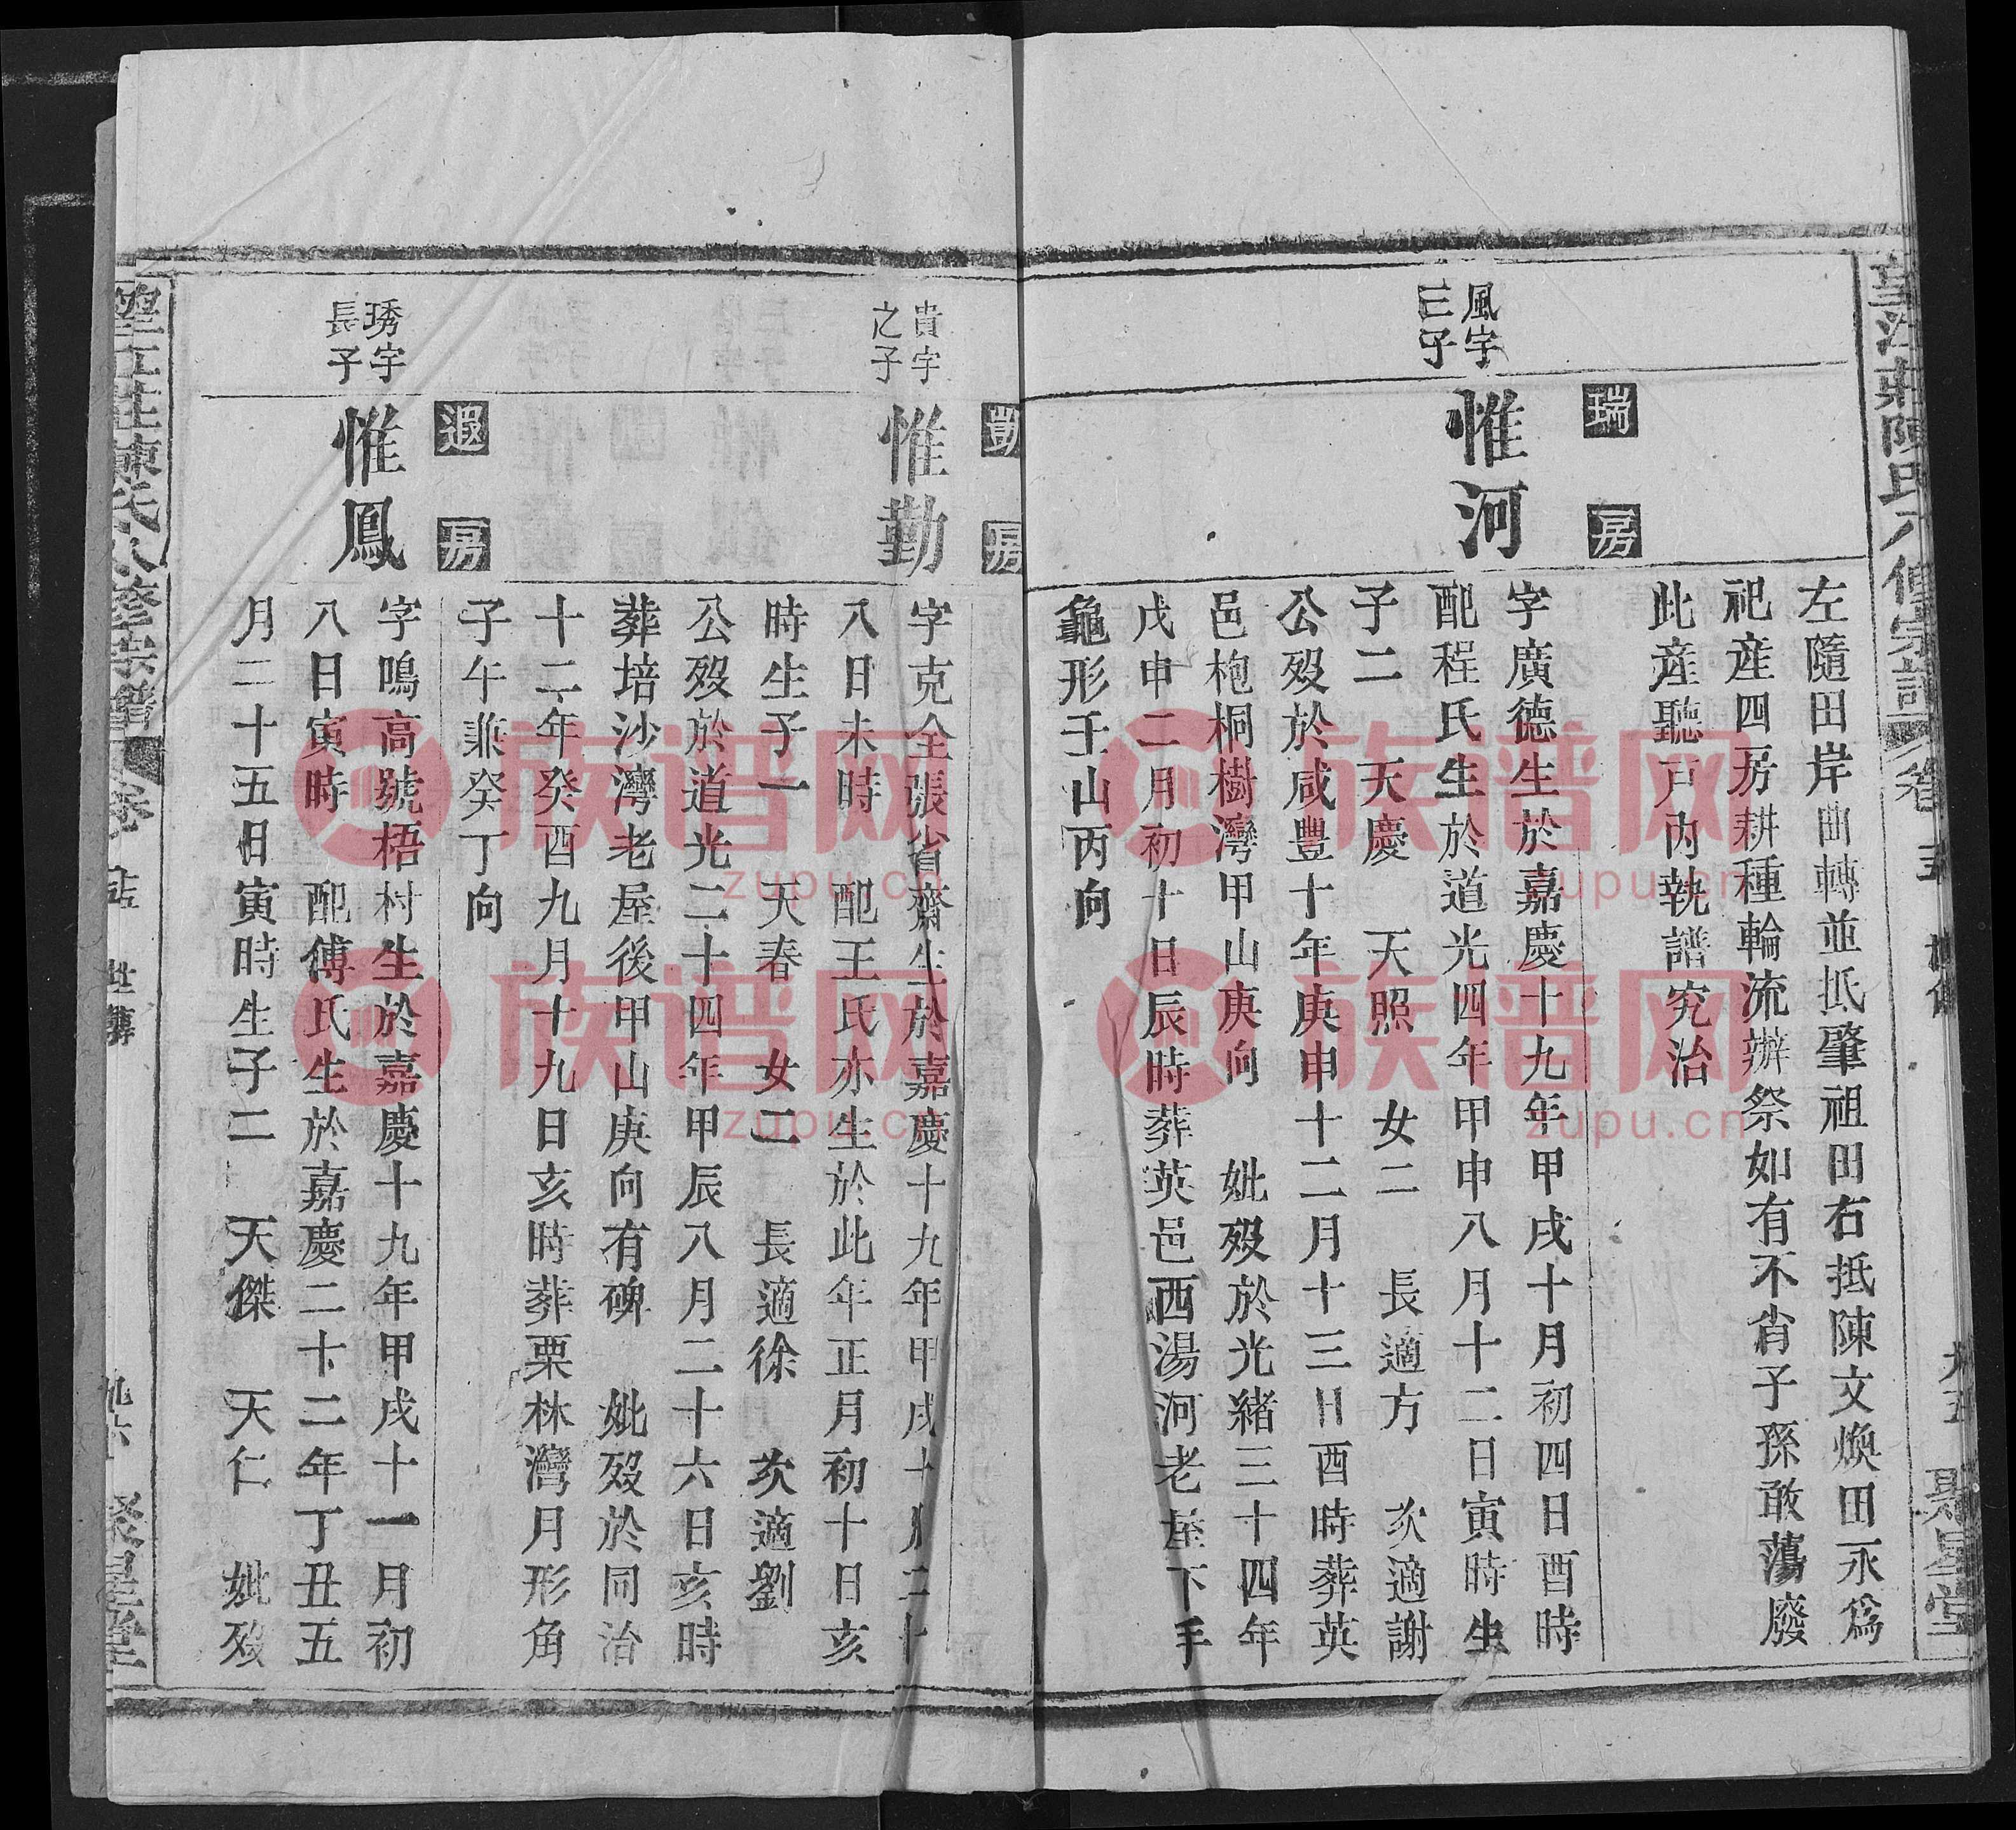 左隨田岸曲轉並抵肇祖田右抵陳文煥田永爲
祀産四房耕種輪流辦祭如有不肖子孫敢蕩廢
此産聽戸內執譜究治
瑞房
風字三子
惟河
字廣德生於嘉慶十九年甲戌十月初四日酉時
配程氏生於道光四年甲申八月十二日寅時生
子二 天慶 天照 女二 長適方 次適謝
公歿於咸豐十年庚申十二月十三日酉時葬英
邑枹桐樹灣甲山庚向 妣歿於光緒三十四年
戊申二月初十日辰時葬英邑西湯河老屋下手
龜形壬山丙向
凱房
貴字之子
惟勤
字克全張省齋生於嘉慶十九年甲戌十月二十
八日未時 配王氏亦生於此年正月初十日亥
時生子一 天春 女二 長適徐 次適劉
公歿於道光二十四年甲辰八月二十六日亥時
葬培沙灣老屋後甲山庚向有碑 妣歿於同治
十二年癸酉九月十九日亥時葬栗林灣月形角
子午兼癸丁向
遐房
琇字長子
惟鳳
字鳴高號梧村生於嘉慶十九年甲戌十一月初
八日寅時 配傅氏生於嘉慶二十二年丁丑五
月二十五日寅時生子二 天傑 天仁 妣歿
望江莊陳氏八修宗譜 聚星堂
族谱网
zupu.cn
族谱网
zupu.cn
族谱网
zupu.cn
族谱网
zupu.cn